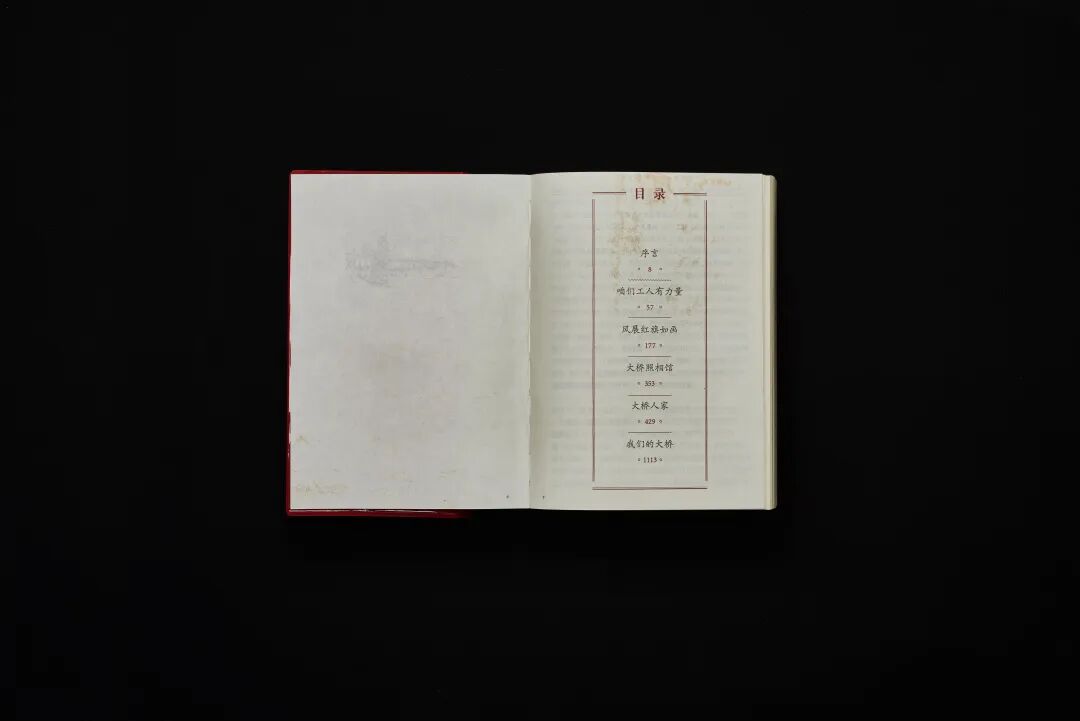 目录
序言
8
咱们工人有力量
57
风展红旗如画
177
大桥照相馆
353
大桥人家
429
我们的大桥
1113